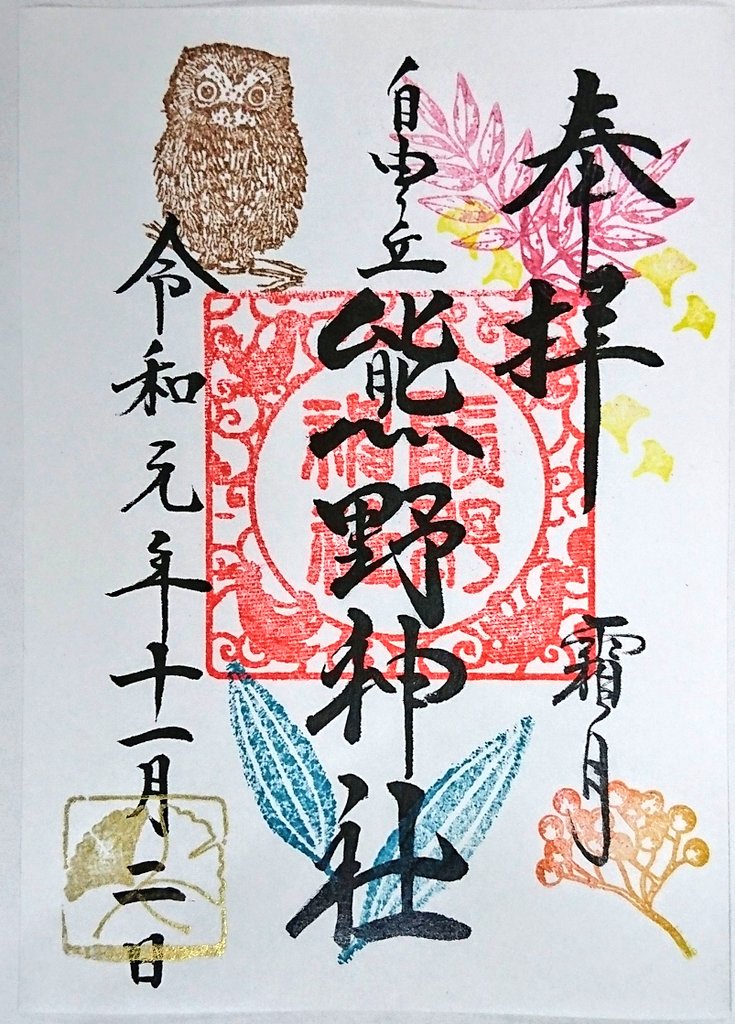 奉拝
霜月
自由ヶ丘
熊野神社
令和元年十一月二日